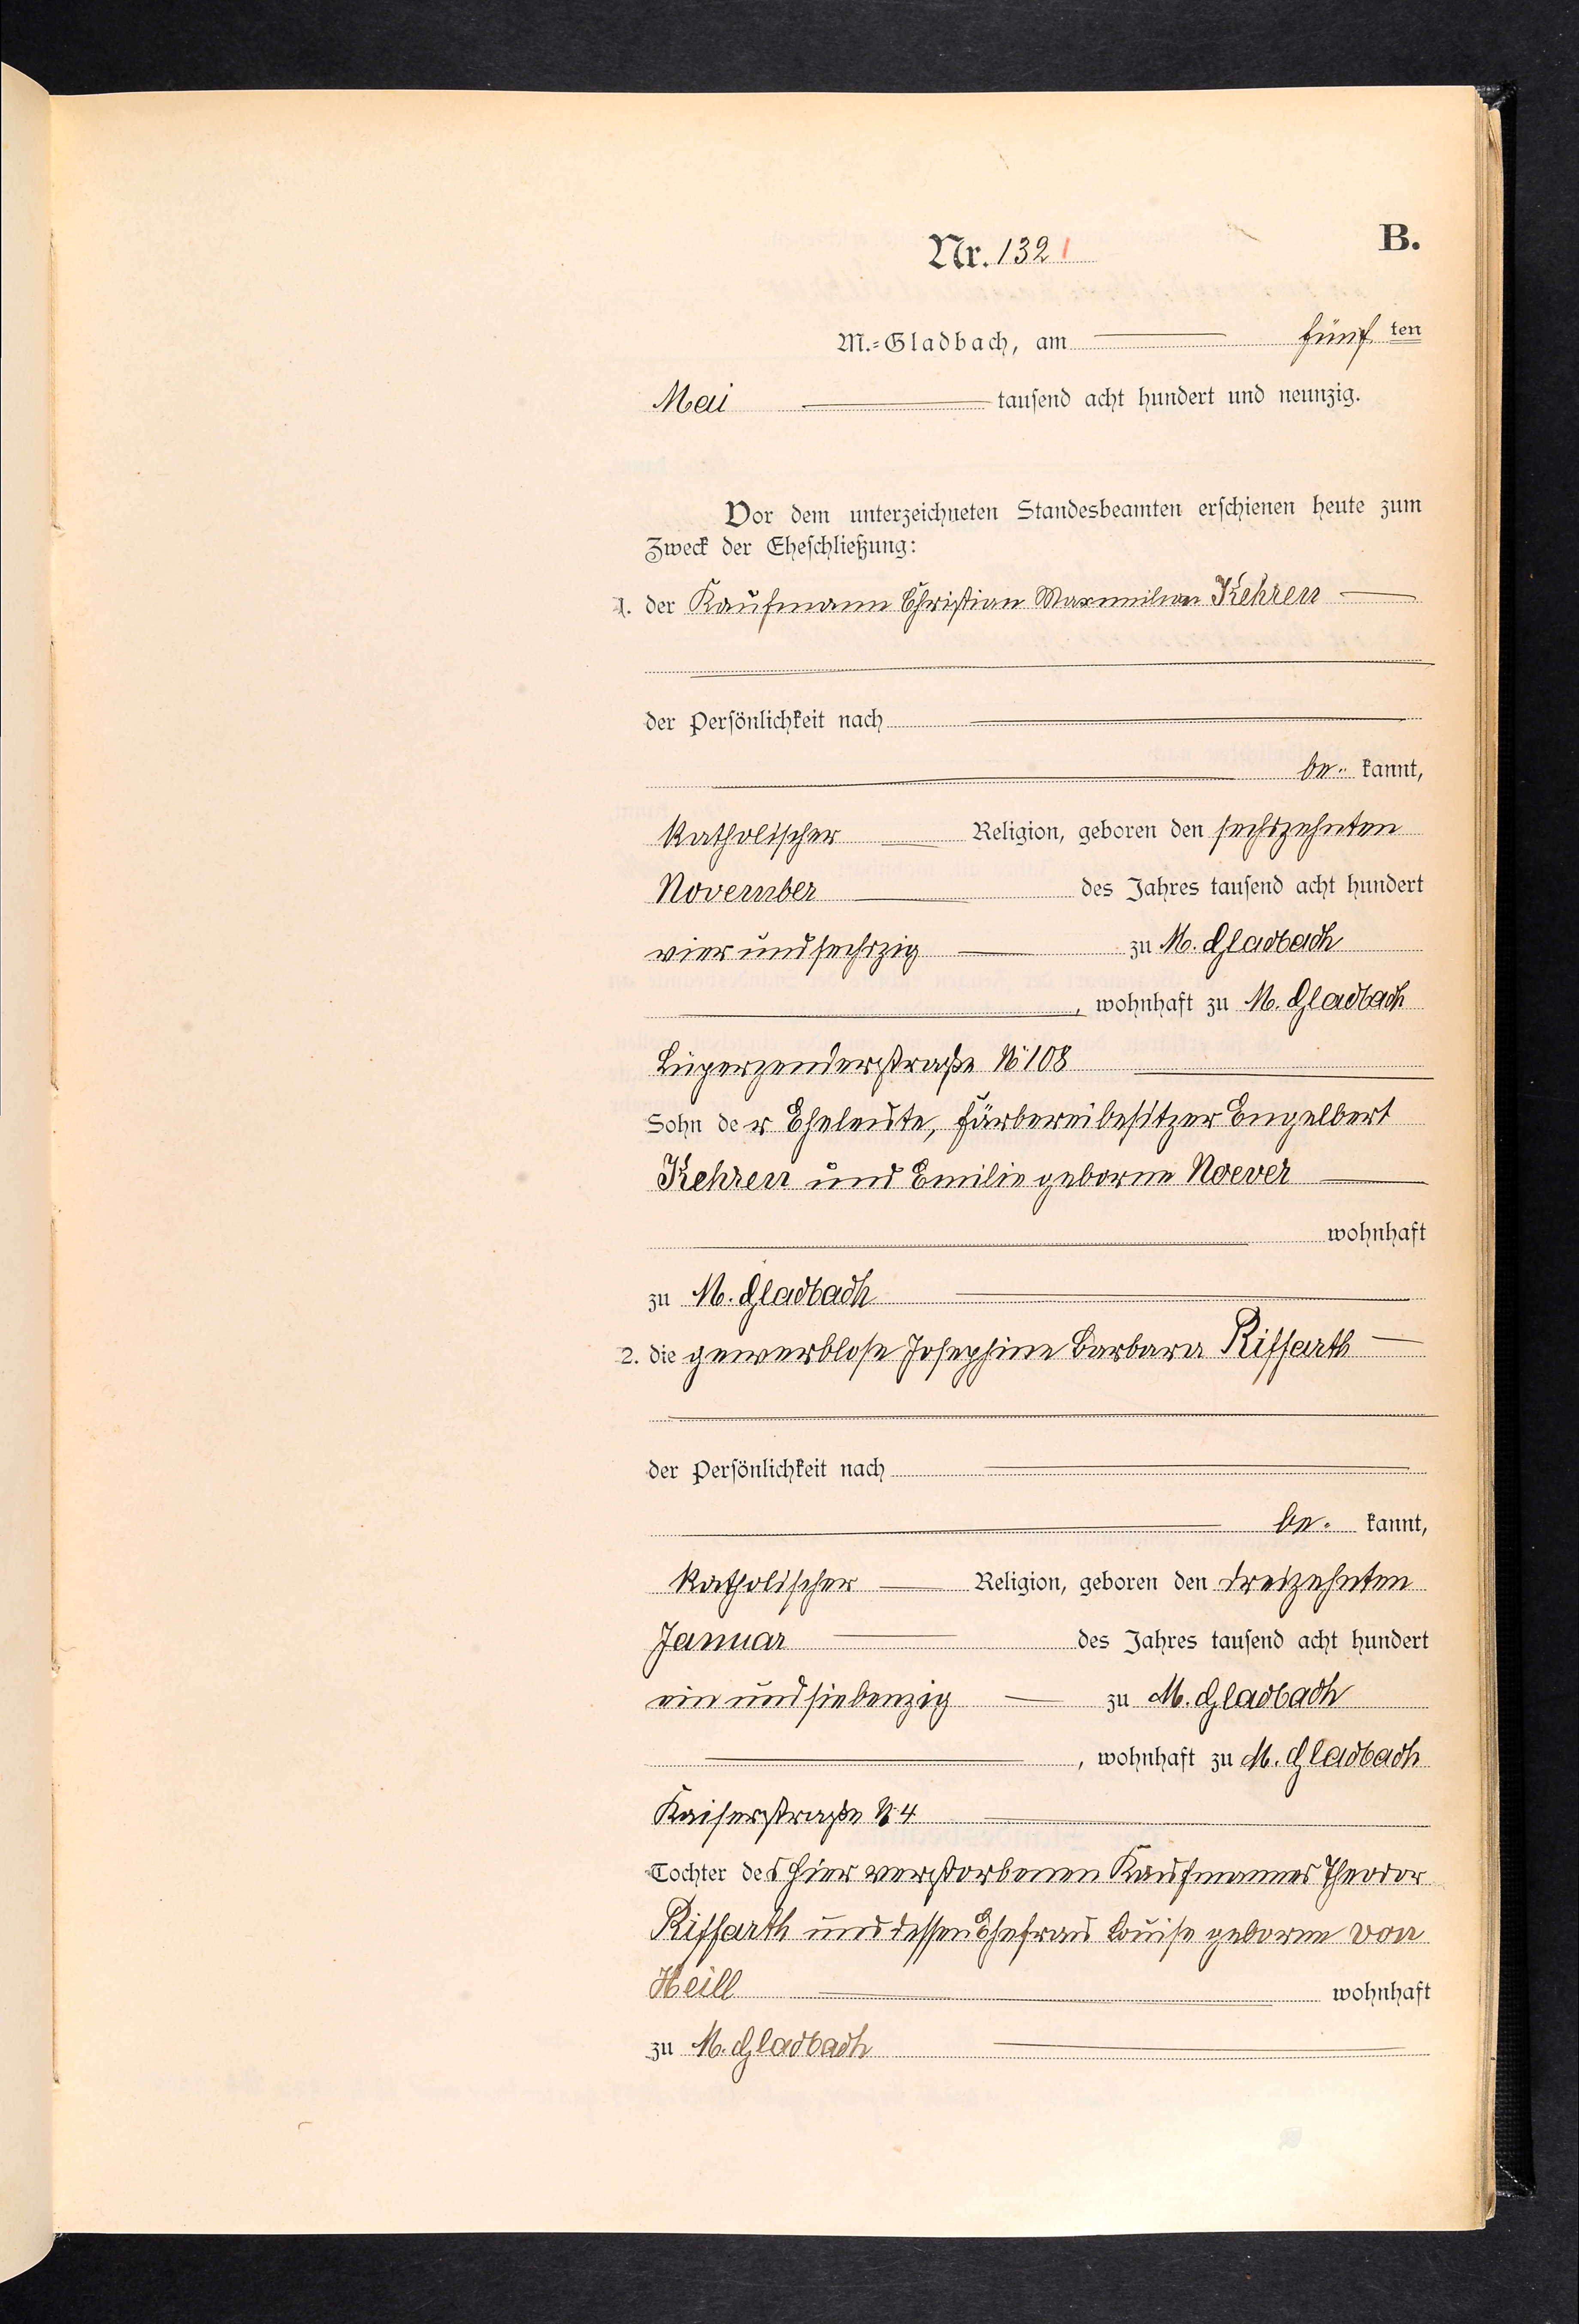 B.
Nr. 132
M.-Gladbach, am fünf ten
Mai tausend acht hundert und neunzig.
Vor dem unterzeichneten Standesbeamten erschienen heute zum
Zweck der Eheschließung:
1. der Kaufmann Christian Maximilian Kehren
der Persönlichkeit nach
be- kannt,
katholischer Religion, geboren den sechszehnten
November des Jahres tausend acht hundert
vier und sechszig zu M. Gladbach
, wohnhaft zu M. Gladbach
Lüperzenderstraße № 108
Sohn der Eheleute, Färbereibesitzer Engelbert
Kehren und Emilie geborne Noever
wohnhaft
zu M. Gladbach
2. die gewerblose Josephine Barbara Riffarth
der Persönlichkeit nach
be- kannt,
katholischer Religion, geboren den dreizehnten
Januar des Jahres tausend acht hundert
ein und siebenzig zu M. Gladbach
, wohnhaft zu M. Gladbach
Kaiserstraße № 4
Tochter des hier verstorbenen Kaufmannes Theodor
Riffarth und dessen Ehefrau Louise geborne von
Heill wohnhaft
zu M. Gladbach